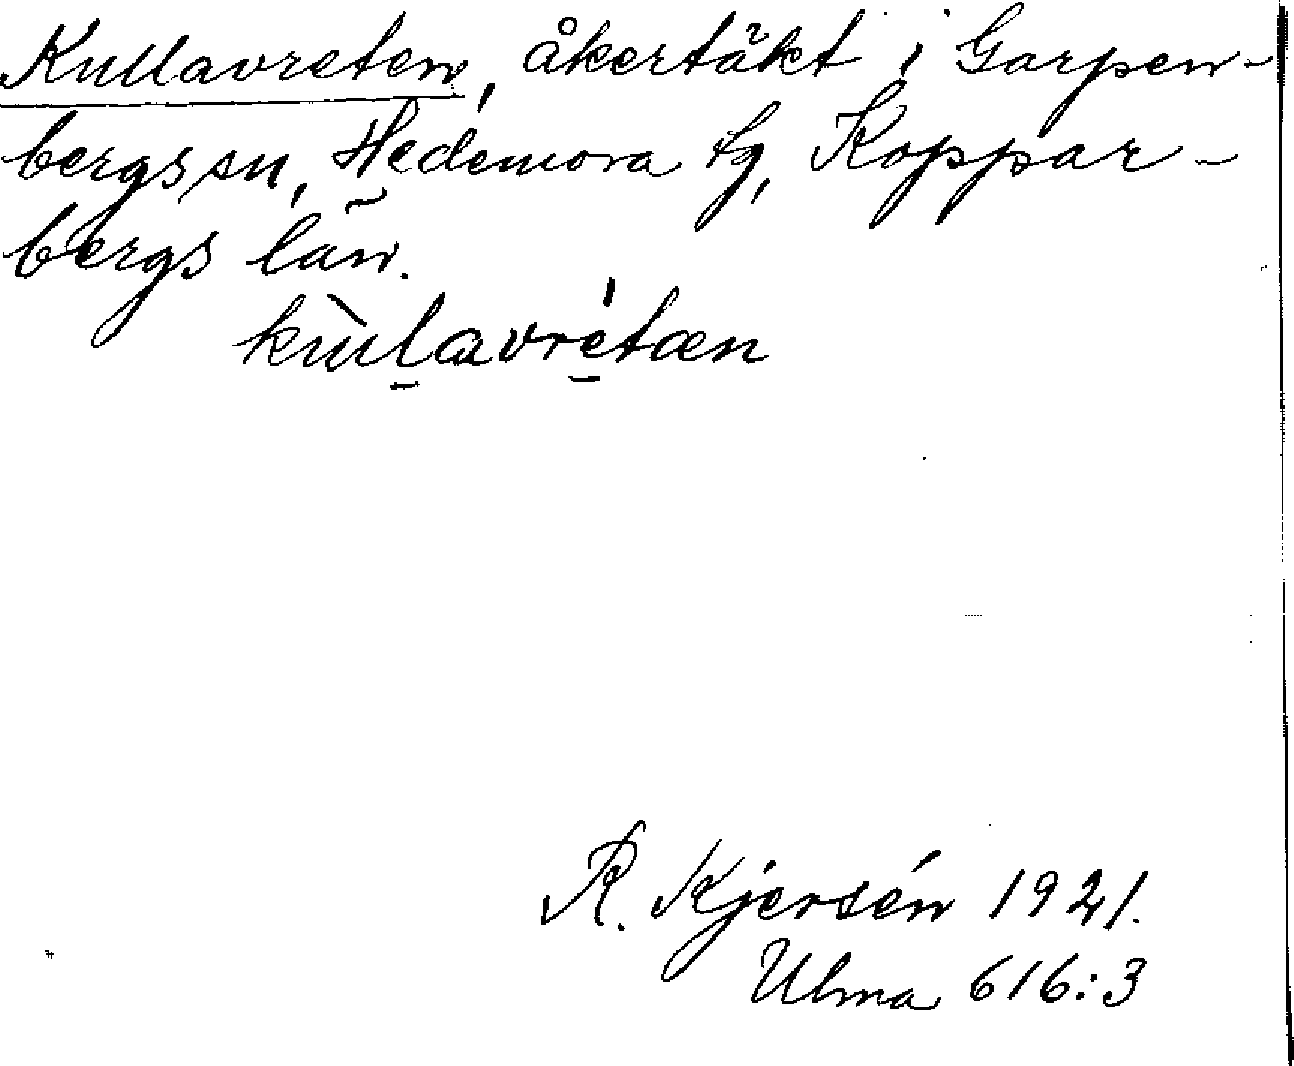 Kullavreten, åkertäkt i Garpen-
bergs sn, Hedemora tg, Koppar-
bergs län.
kùlavrétæn
R. Kjersén 1921.
Ulma 616:3